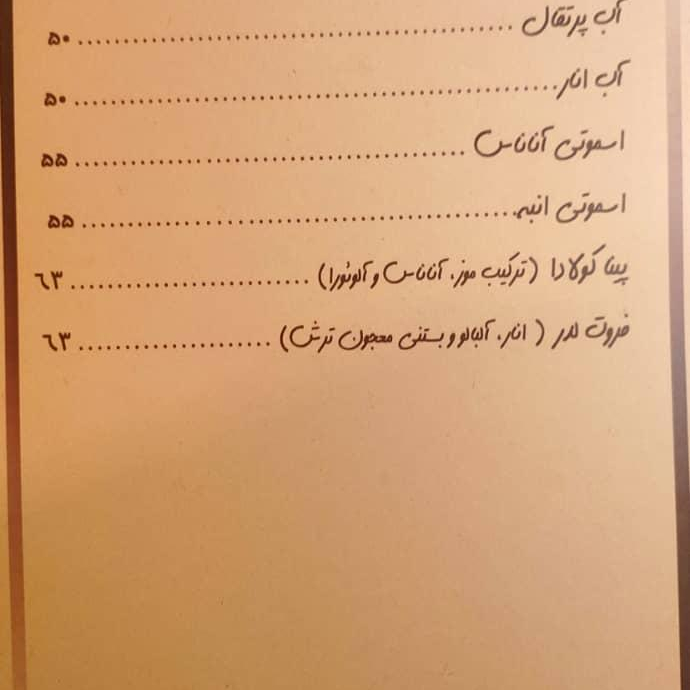 آب پرتقال ........................................ ۵۰
آب انار ........................................ ۵۰
اسموتی آناناس ........................................ ۵۵
اسموتی انبه ........................................ ۵۵
پینا کولادا (ترکیب موز، آناناس و آلوئورا) ......................... ۶۳
فروت لدر ( انار، آلبالو و بستنی معجون ترش) .................... ۶۳